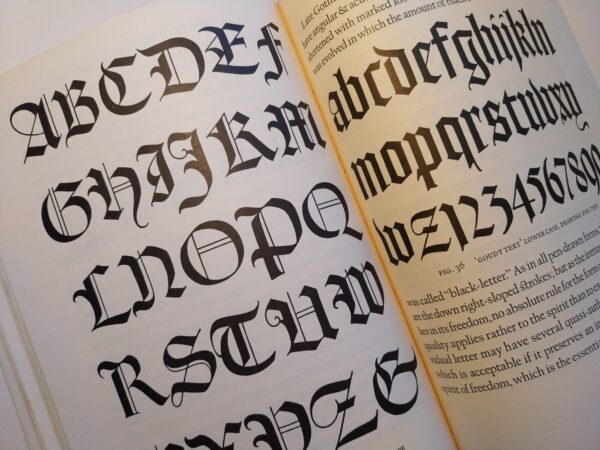 ABCDEF
GHIJKM
LNOPQ
RSTUW
XYZ
Late Goth
have angular & acu
shortened with marked
was evolved in which the amount of black
abcdefghijkln
mopqrstuvxy
wz1234567890
FIG. 36 'GOUDY TEXT' LOWER CASE, DRAWING FOR TYPE
was called "black-letter." As in all pen-drawn forms
are the down right-sloped strokes; but as the intrin
lies in its freedom, no absolute rule for the forms
quality applies rather to the spirit than to ex
vidual letter may have several quasi-auth
which is acceptable if it preserves an in
spirit of freedom, which is the essentia